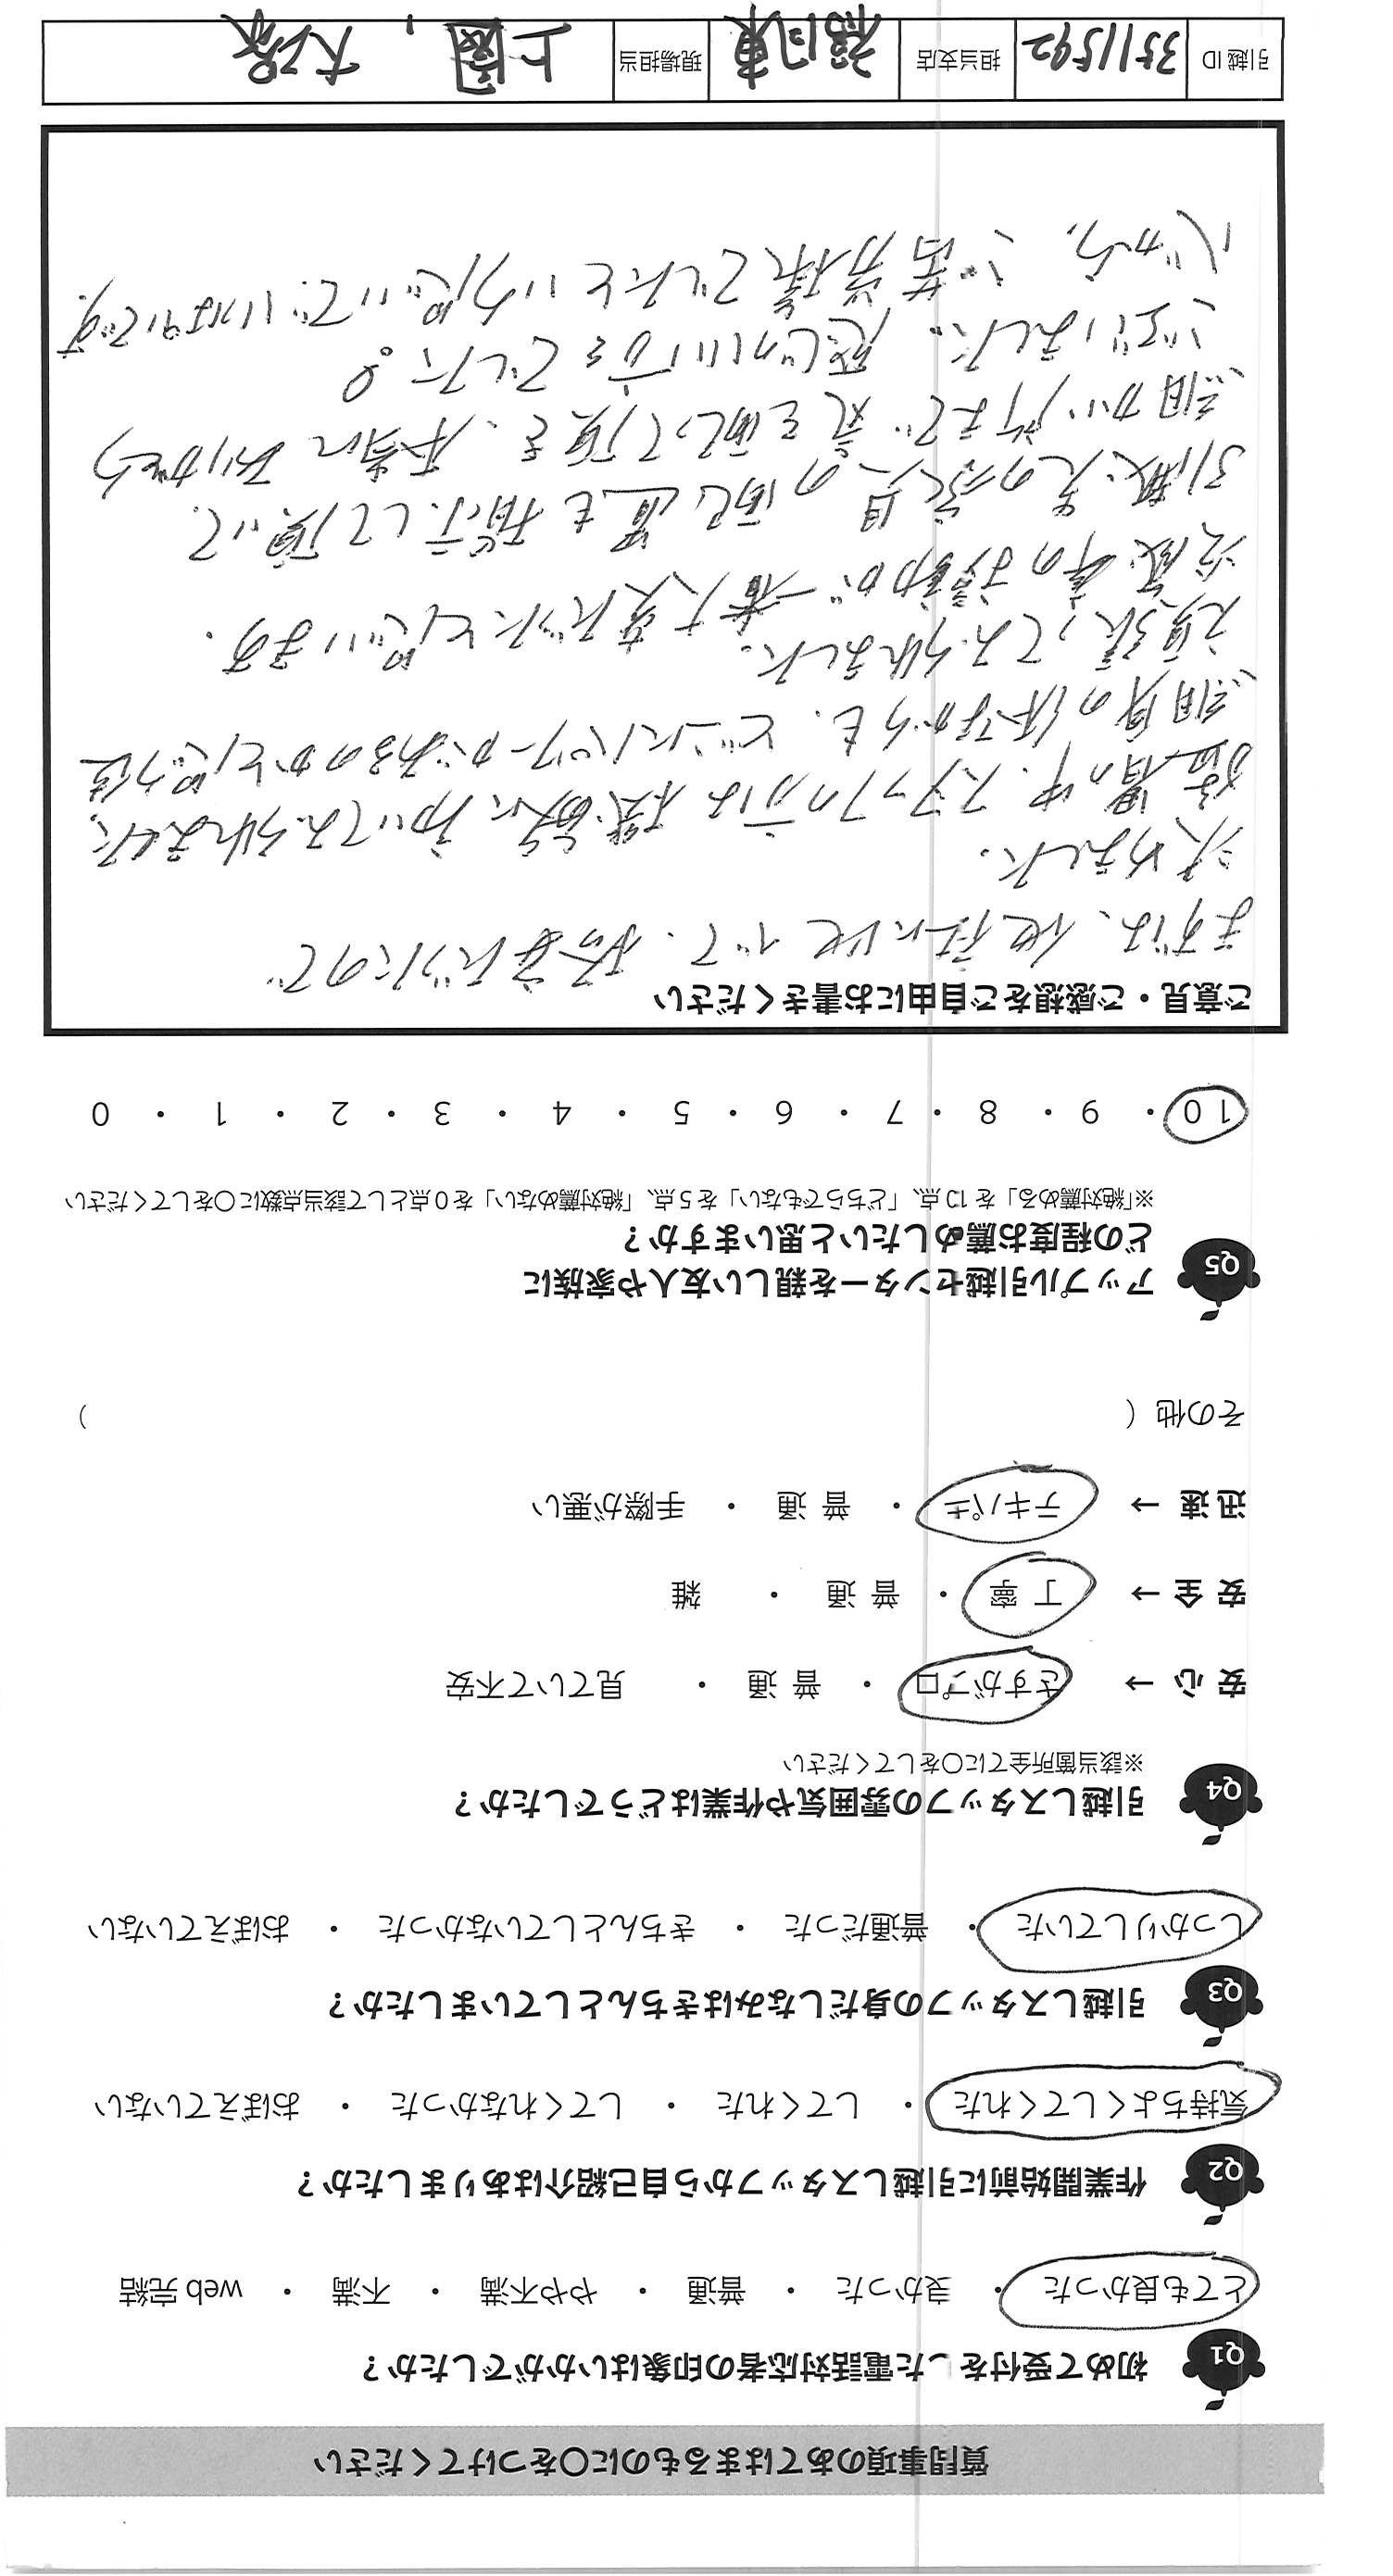 質問事項のあてはまるものに○をつけてください
Q1 初めて受付をした電話対応者の印象はいかがでしたか？
とても良かった ・ 良かった ・ 普通 ・ やや不満 ・ 不満 ・ web 完結
Q2 作業開始前に引越しスタッフから自己紹介はありましたか？
気持ちよくしてくれた ・ してくれた ・ してくれなかった ・ おぼえていない
Q3 引越しスタッフの身だしなみはきちんとしていましたか？
しっかりしていた ・ 普通だった ・ きちんとしていなかった ・ おぼえていない
Q4 引越しスタッフの雰囲気や作業はどうでしたか？
※該当箇所全てに○をしてください
安 心 → さすがプロ ・ 普 通 ・ 見ていて不安
安 全 → 丁 寧 ・ 普 通 ・ 雑
迅 速 → テキパキ ・ 普 通 ・ 手際が悪い
その他（ ）
Q5 アップル引越センターを親しい友人や家族に
どの程度お薦めしたいと思いますか？
※「絶対薦める」を 10 点、「どちらでもない」を 5 点、「絶対薦めない」を 0 点として該当点数に○をしてください
10 ・ 9 ・ 8 ・ 7 ・ 6 ・ 5 ・ 4 ・ 3 ・ 2 ・ 1 ・ 0
ご意見・ご感想をご自由にお書きください
まずは、他社に比べて、格安だったので
決めました。
猛暑の中、スタッフの方は機敏に動いてくれました
細身の体ながらも、どこにパワーがあるのかと思う位
頑張ってくれました。
冷蔵庫の移動が一番大変だったと思います。
引越先の家具の配置も指示して頂いて
細かい所まで気を配って頂き、本当にありがとう
ございました。感じのいい方々でした。
心から、ご苦労様でしたという思いで、いっぱいです。
引越 ID 3511592 担当支店 福岡東 現場担当 上園 、 大塚